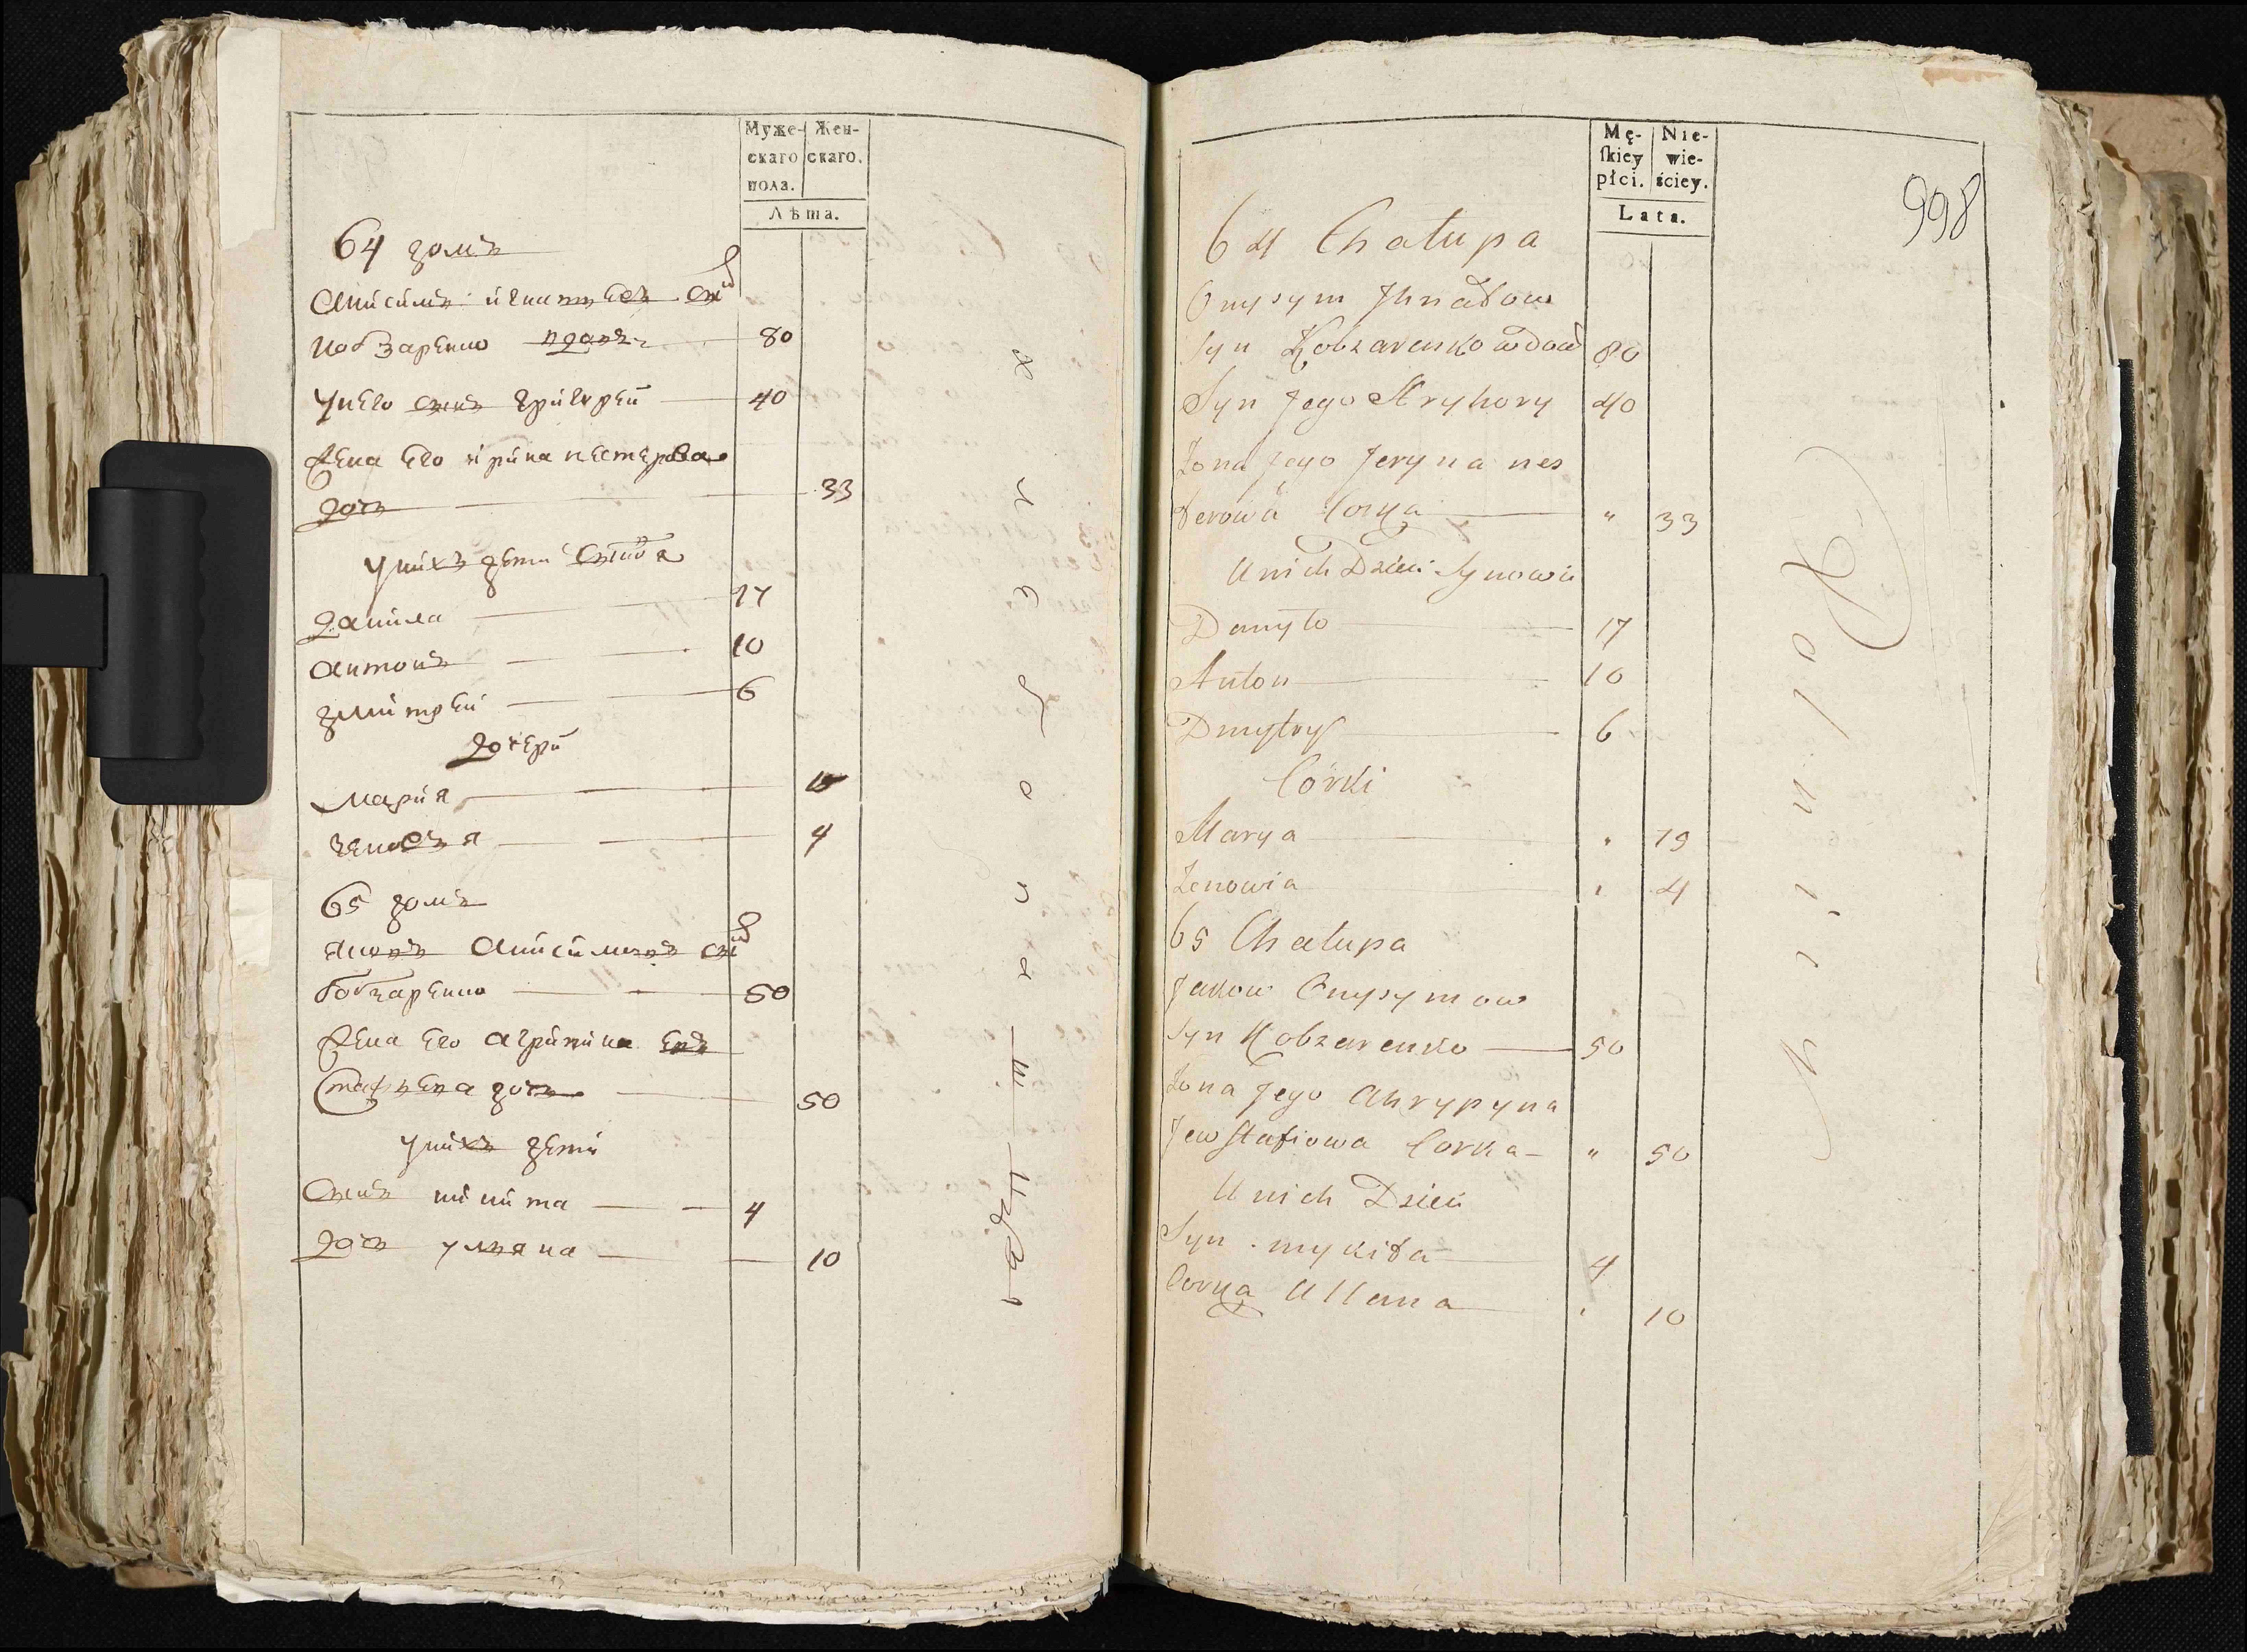 Муже-
скаго
пола.
Жен-
скаго.
Лѣта.
64 домъ
Анисимъ игнатьевъ снъ
кобзаренко вдовъ 80
Унего сынъ григорей 40
Жена Его ирина нестерова
дочь 33
Унихъ дети сыновя
данила 17
антонъ 10
дмитрей 6
дочери
Мария
зеновъя 4
65 домъ
яковъ Анисимовъ снъ
кобзаренко 50
Жена Его агрипина Ев
стафьева дочь 50
Унихъ дети
Сынъ никита 4
дочь ульяна 10
Mę-
ſkiey
płci.
Nie-
wie-
ściey.
Lata.
998
64 Chałupa
Onysym Jhnatow
Syn Kobzarenko wdow 80
Syn Jego Hryhory 40
Żona Jego Jeryna nes
terowa Corka " 33
U nich Dzieci Synowie
Danyło 17
Anton 10
Dmytry 6
Córki
Marya " 19
Zenowia " 4
65 Chałupa
Jakow Onysymow
Syn Kobzarenko 50
Żona Jego Ahrypyna
Jewstafiowa Corka " 50
U nich Dzieci
Syn mykita 4
Corka Ullana " 10